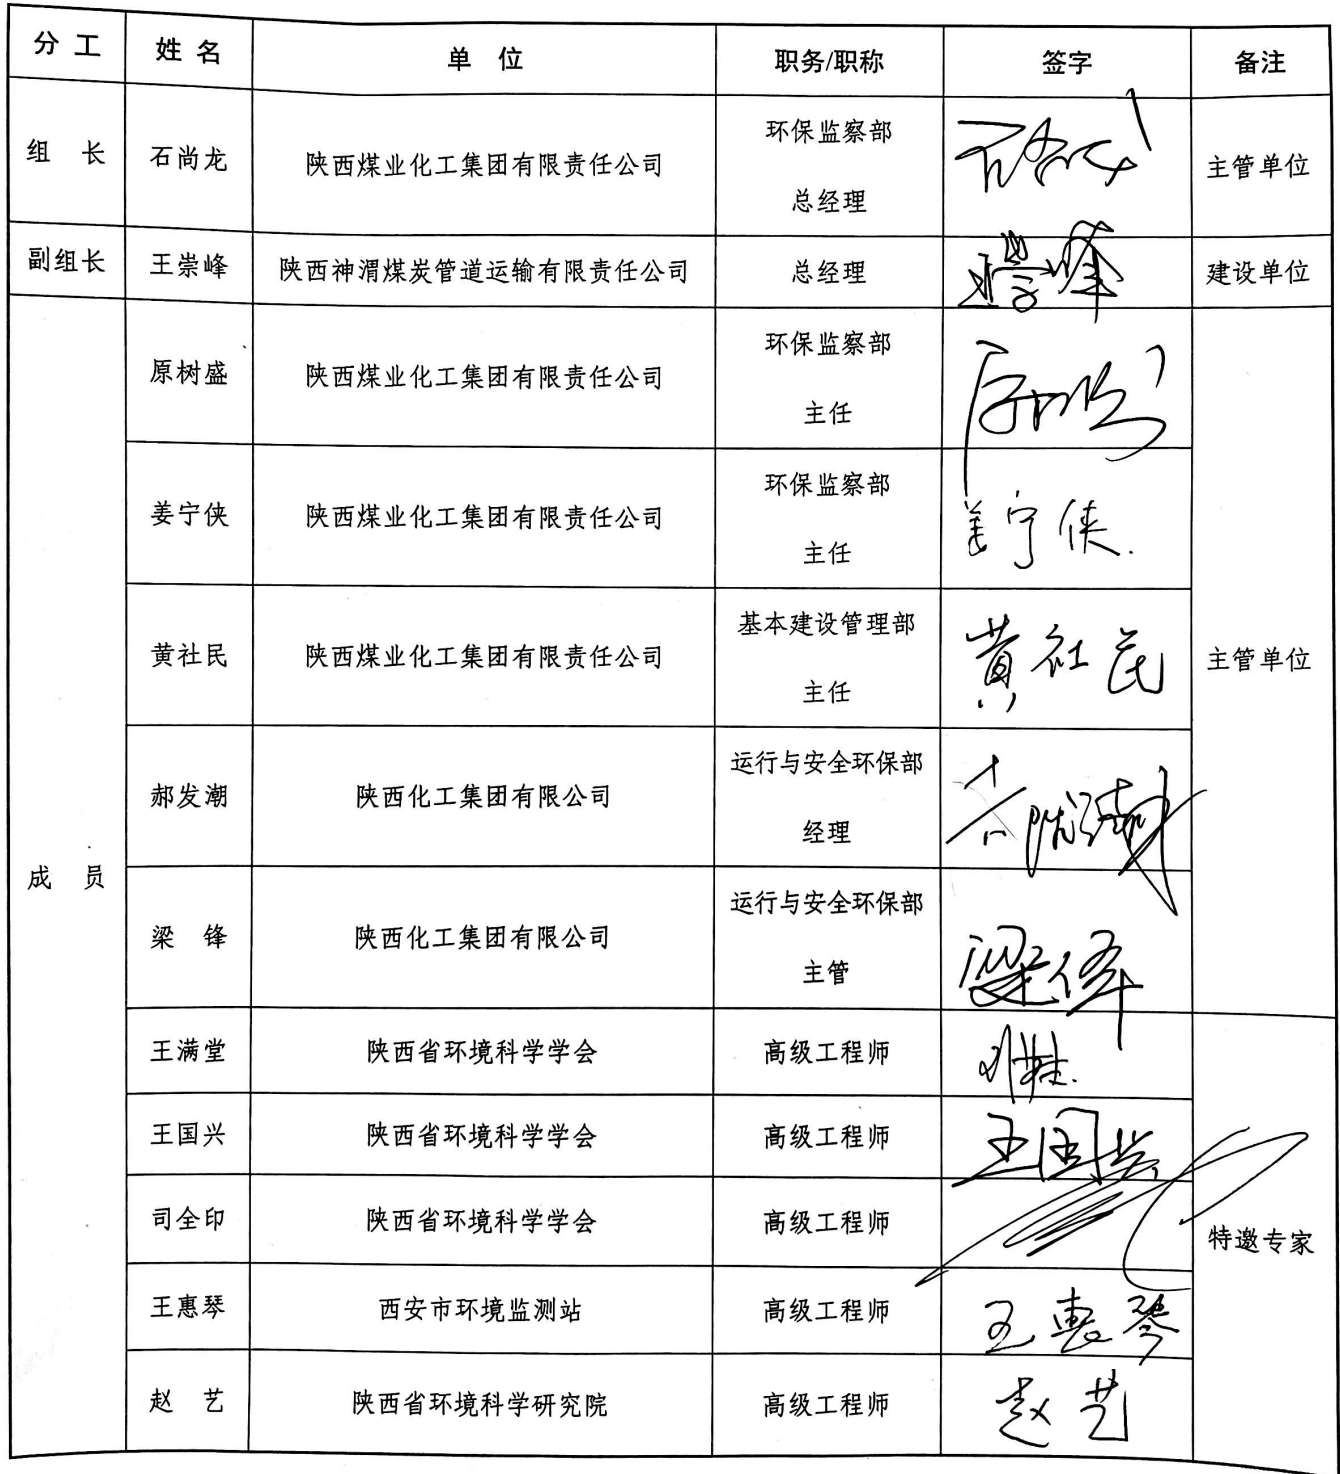 分工 姓名 单位 职务/职称 签字 备注
组长 石尚龙 陕西煤业化工集团有限责任公司 环保监察部 主管单位
总经理
副组长 王崇峰 陕西神渭煤炭管道运输有限责任公司 总经理 建设单位
原树盛 陕西煤业化工集团有限责任公司 环保监察部
主任
姜宁侠 陕西煤业化工集团有限责任公司 环保监察部 姜宁侠.
主任
黄社民 陕西煤业化工集团有限责任公司 基本建设管理部 黄社民 主管单位
主任
郝发潮 陕西化工集团有限公司 运行与安全环保部
经理
成员
梁锋 陕西化工集团有限公司 运行与安全环保部 梁
主管
王满堂 陕西省环境科学学会 高级工程师
王国兴 陕西省环境科学学会 高级工程师 王国兴
司全印 陕西省环境科学学会 高级工程师 特邀专家
王惠琴 西安市环境监测站 高级工程师 王惠琴
赵艺 陕西省环境科学研究院 高级工程师 赵艺